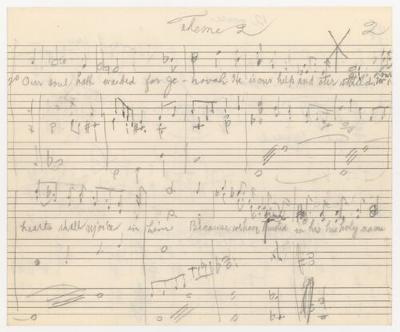 Theme 2 2
2º Our soul hath waited for Je-hovah He is our help and our shield
hearts shall rejoice in him Because in his holy name